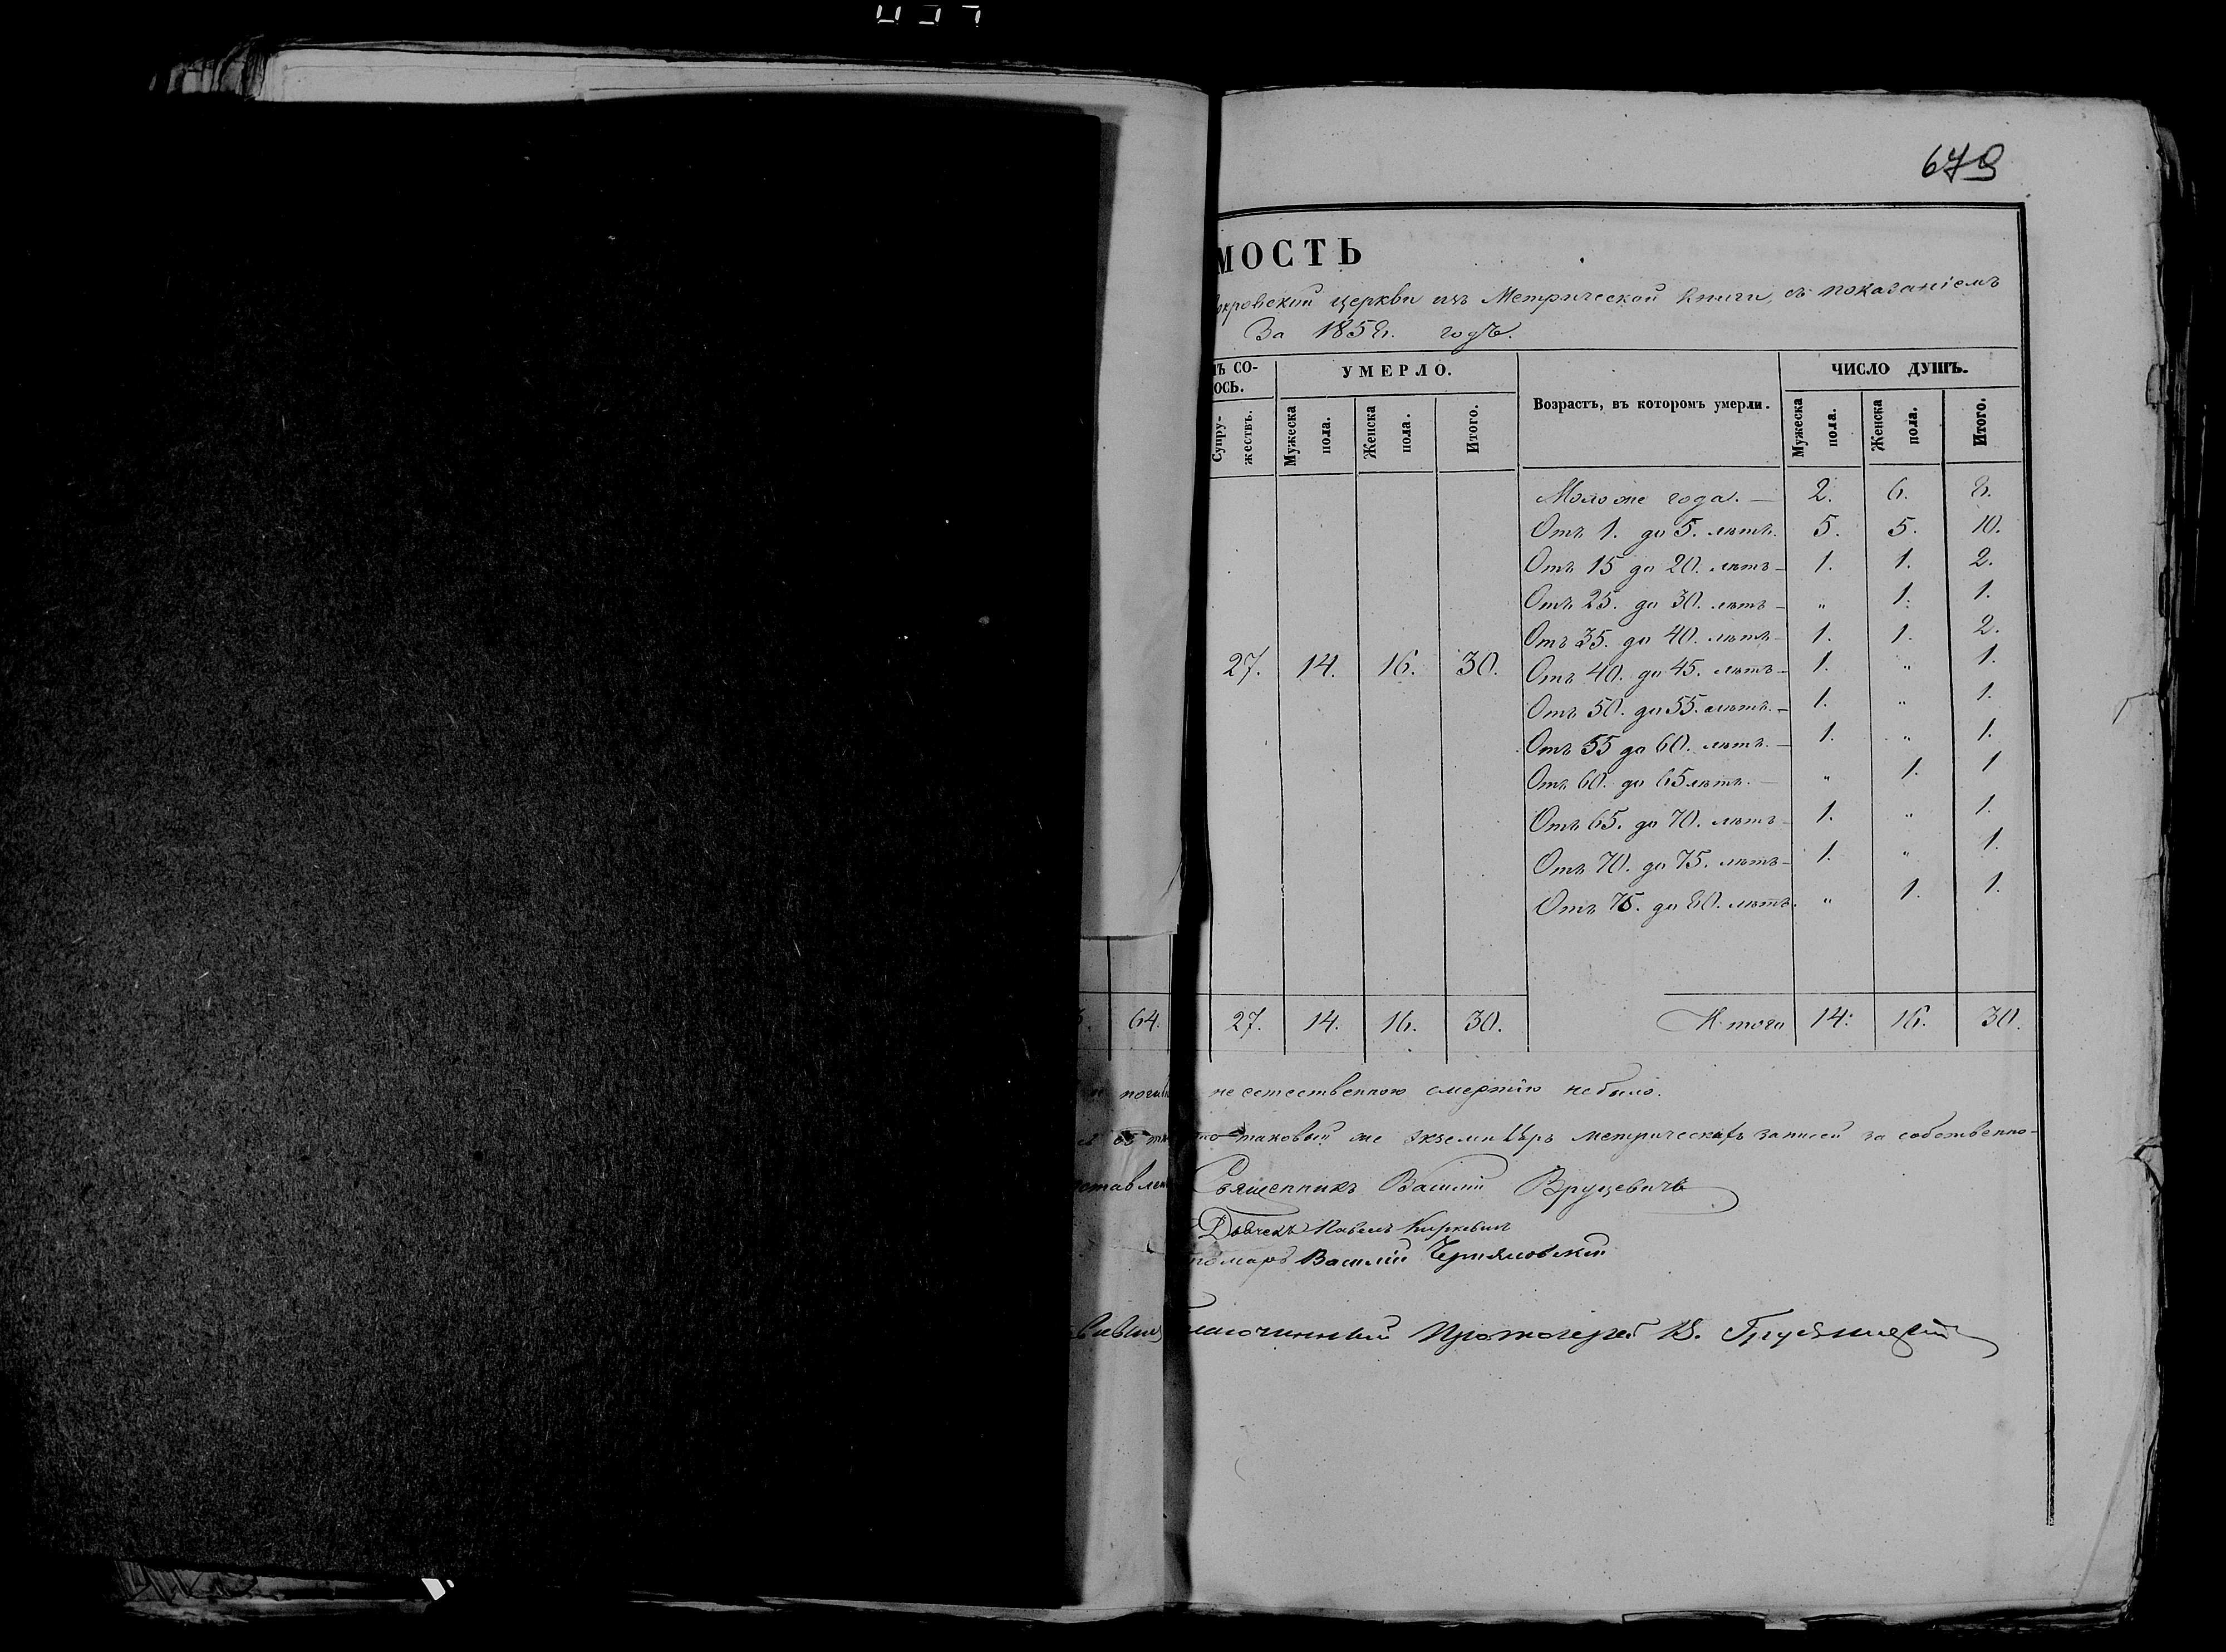 679
МОСТЬ
окровской церкви изъ Метрической Книги, съ показаніемъ
За 1858. годъ.
УМЕРЛО.
ЧИСЛО ДУШЪ.
ТЪ СО-
ОСЬ.
Супру-
жествъ.
Мужеска
пола.
Женска
пола.
Итого.
Возрастъ, въ которомъ умерли.
Мужеска
пола.
Женска
пола.
Итого.
Моложе года. — 2. 6. 8.
Отъ 1. до 5. лѣтъ. 5. 5. 10.
Отъ 15 до 20. лѣтъ - 1. 1. 2.
Отъ 25. до 30. лѣтъ - „ 1. 1.
Отъ 35. до 40. лѣтъ - 1. 1. 2.
27. 14. 16. 30. Отъ 40. до 45. лѣтъ - 1. „ 1.
Отъ 50. до 55. лѣтъ. - 1. „ 1.
Отъ 55 до 60. лѣтъ. — 1. „ 1.
Отъ 60. до 65 лѣтъ. — „ 1. 1
Отъ 65. до 70. лѣтъ - 1. „ 1.
Отъ 70. до 75. лѣтъ - 1. „ 1.
Отъ 75. до 80. лѣтъ. „ 1. 1.
64. 27. 14. 16. 30. Итого 14. 16. 30.
неестественною смертію небыло.
таковый же экземпляръ метрическихъ записей за собственно-
Священникъ Василій Вруцевичъ
Дьячекъ Павелъ Киркевич
номарь Василій Черняковскій
Протоіерей В. Грудницкій